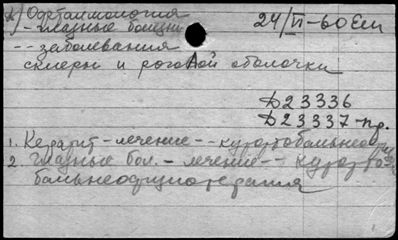 Офтальмология
- глазные болезни
-- заболевания
склеры и роговой оболочки
24/VI-60 Ем
Д23336
Д23337-пр.
1. Кератит - лечение -- курортобальнеоф
2. Глазные бол. - лечение -- курорто
бальнеофизиотерапия